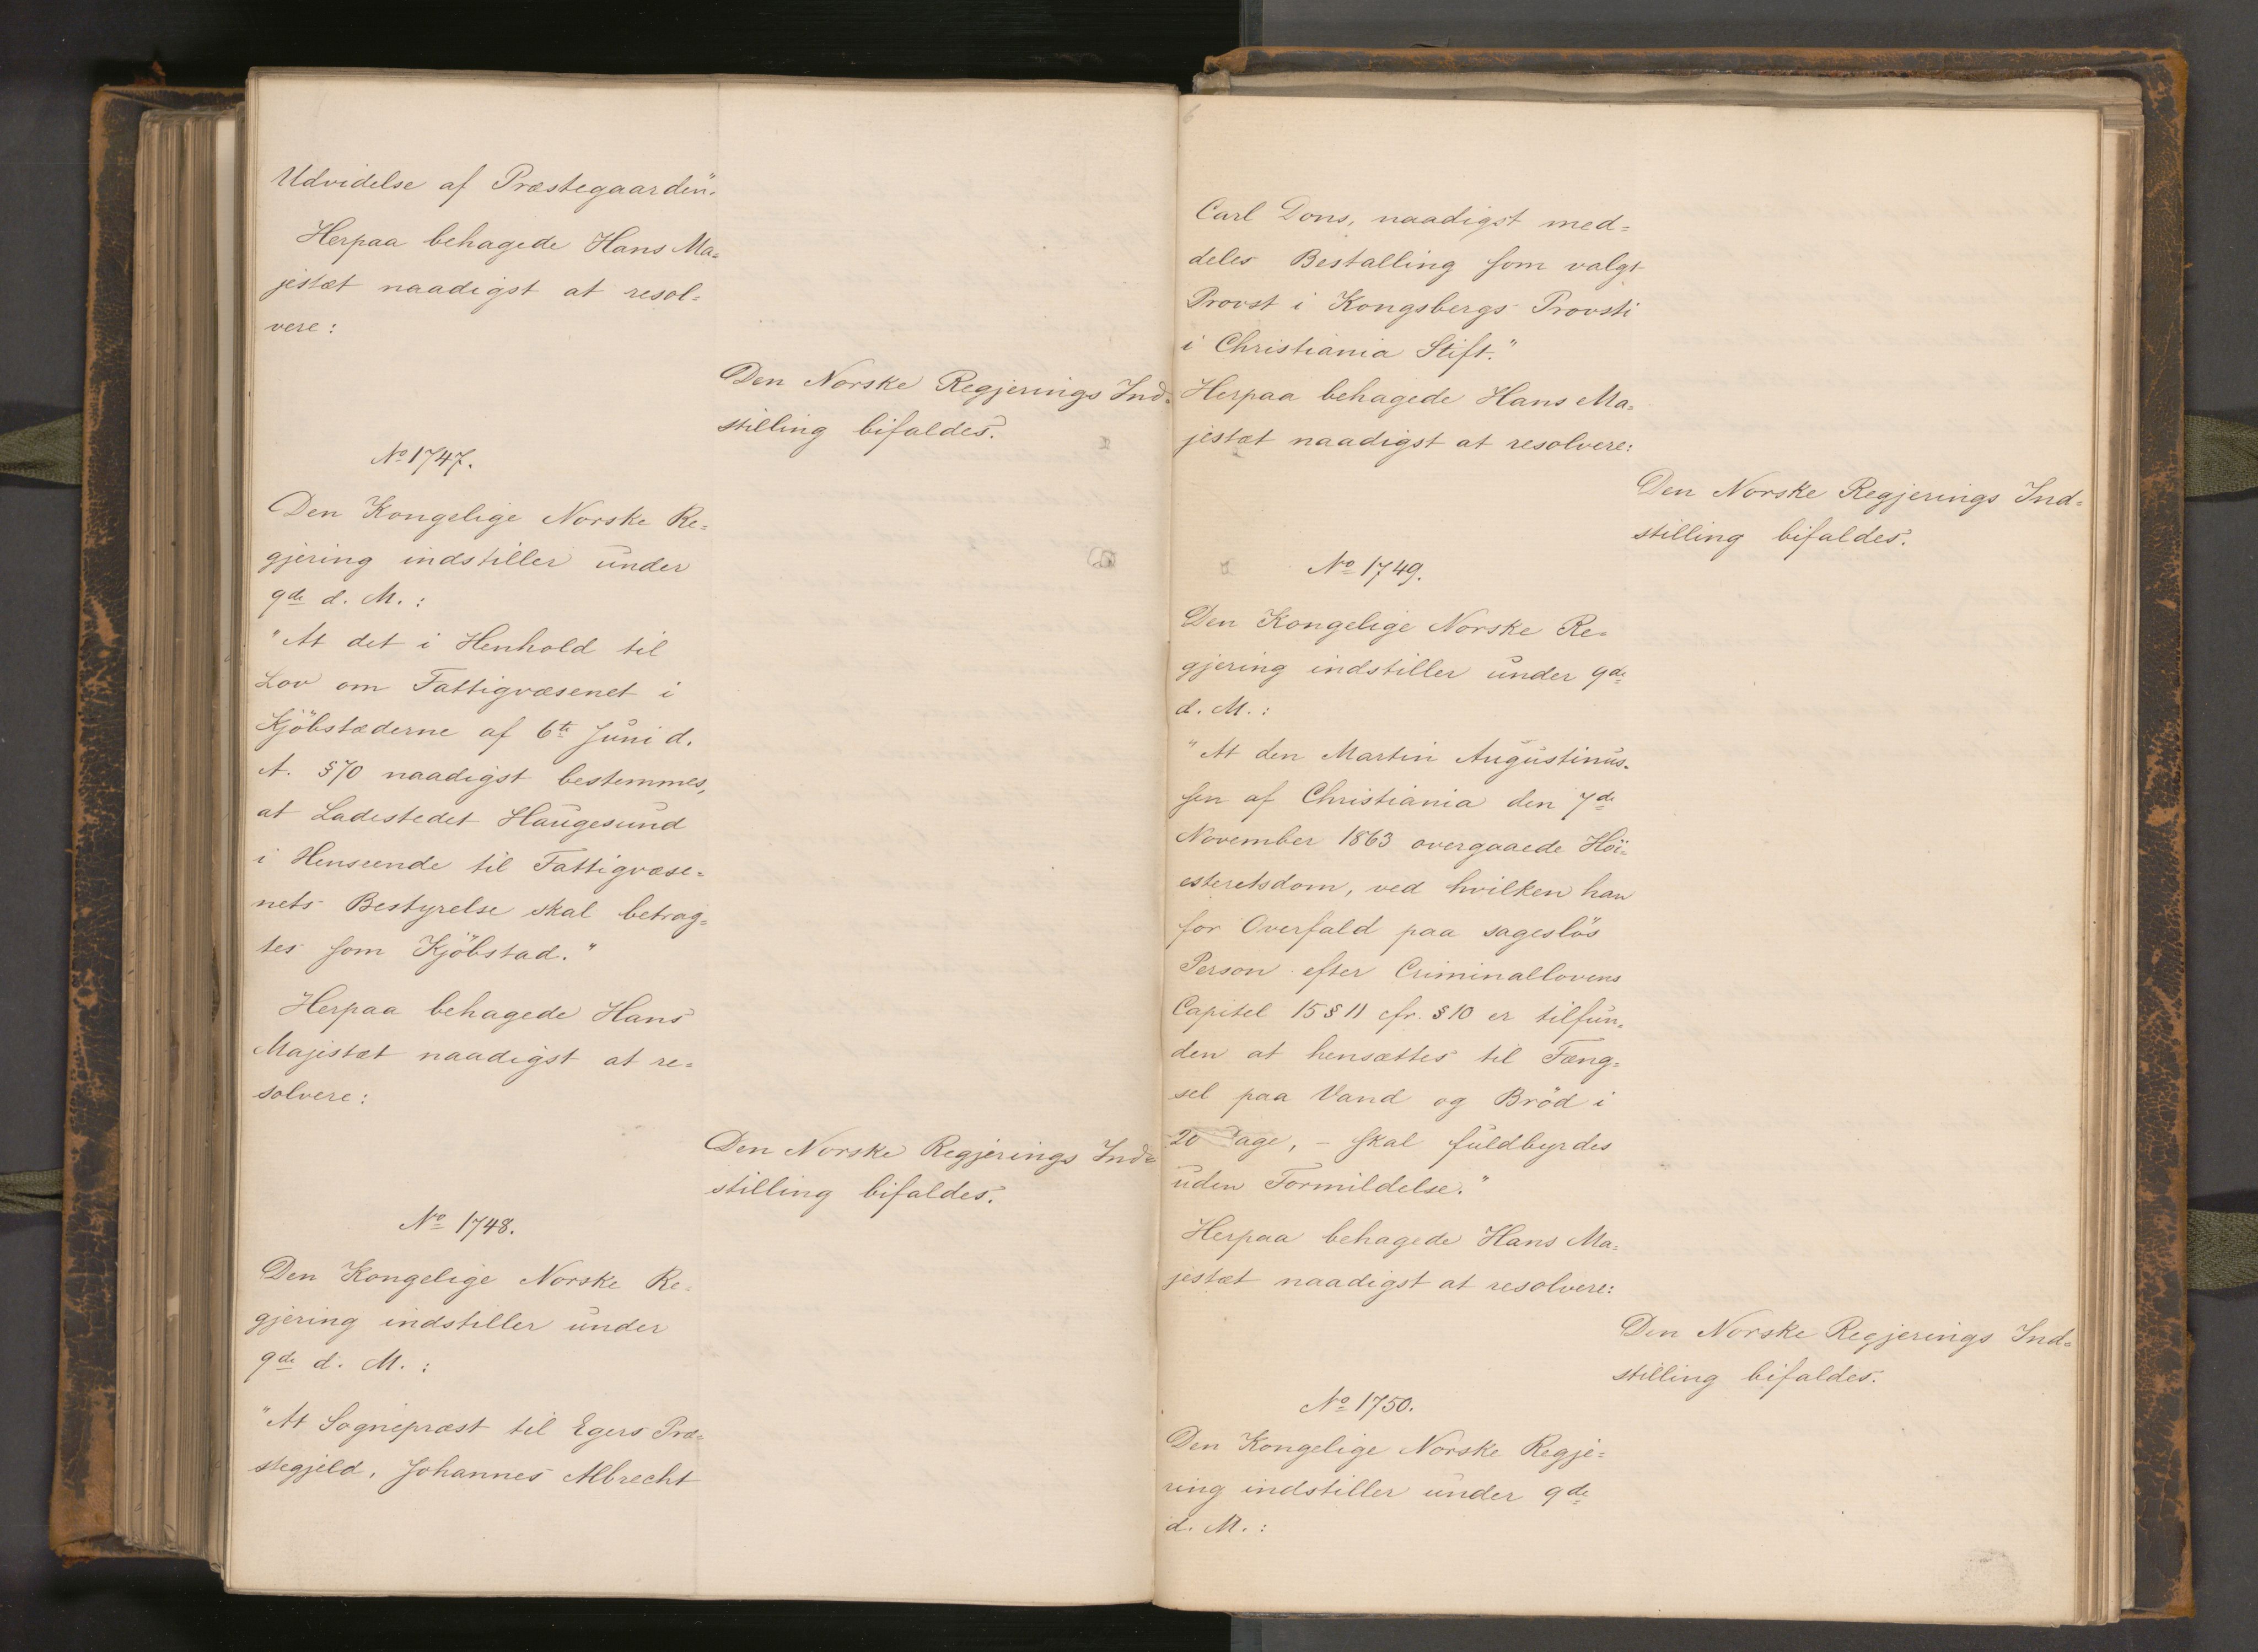 Udvidelse af Præstegaarden".
Herpaa behagede Hans Ma=
jestæt naadigst at resol=
vere:
Den Norske Regjerings Ind=
stilling bifaldes.
No 1747.
Den Kongelige Norske Re=
gjering indstiller under
9de d. M.:
"At det i Henhold til
Lov om Fattigvæsenet i
Kjöbstæderne af 6te Juni d.
A. § 70 naadigst bestemmes,
at Ladestedet Haugesund
i Henseende til Fattigvæse=
nets Bestyrelse skal betrag=
tes som Kjöbstad."
Herpaa behagede Hans
Majestæt naadigst at re=
solvere:
Den Norske Regjerings Ind=
stilling bifaldes.
No 1748.
Den Kongelige Norske Re=
gjering indstiller under
9de d. M.:
"At Sognepræst til Egers Præ=
stegjeld, Johannes Albrecht
Carl Dons, naadigst med=
deles Bestalling som valgt
Provst i Kongsbergs Provsti
i Christiania Stift."
Herpaa behagede Hans Ma=
jestæt naadigst at resolvere:
Den Norske Regjerings Ind=
stilling bifaldes.
No 1749.
Den Kongelige Norske Re=
gjering indstiller under 9de
d. M.:
"At den Martin Augustinus=
sen af Christiania den 7de
November 1863 overgaaede Höi=
esteretsdom, ved hvilken han
for Overfald paa sageslös
Person efter Criminallovens
Capitel 15 § 11 cfr. § 10 er tilfun=
den at hensættes til Fæng=
sel paa Vand og Bröd i
20 Dage, - skal fuldbyrdes
uden Formildelse."
Herpaa behagede Hans Ma=
jestæt naadigst at resolvere:
Den Norske Regjerings Ind=
stilling bifaldes.
No 1750.
Den Kongelige Norske Regje=
ring indstiller under 9de
d. M.: